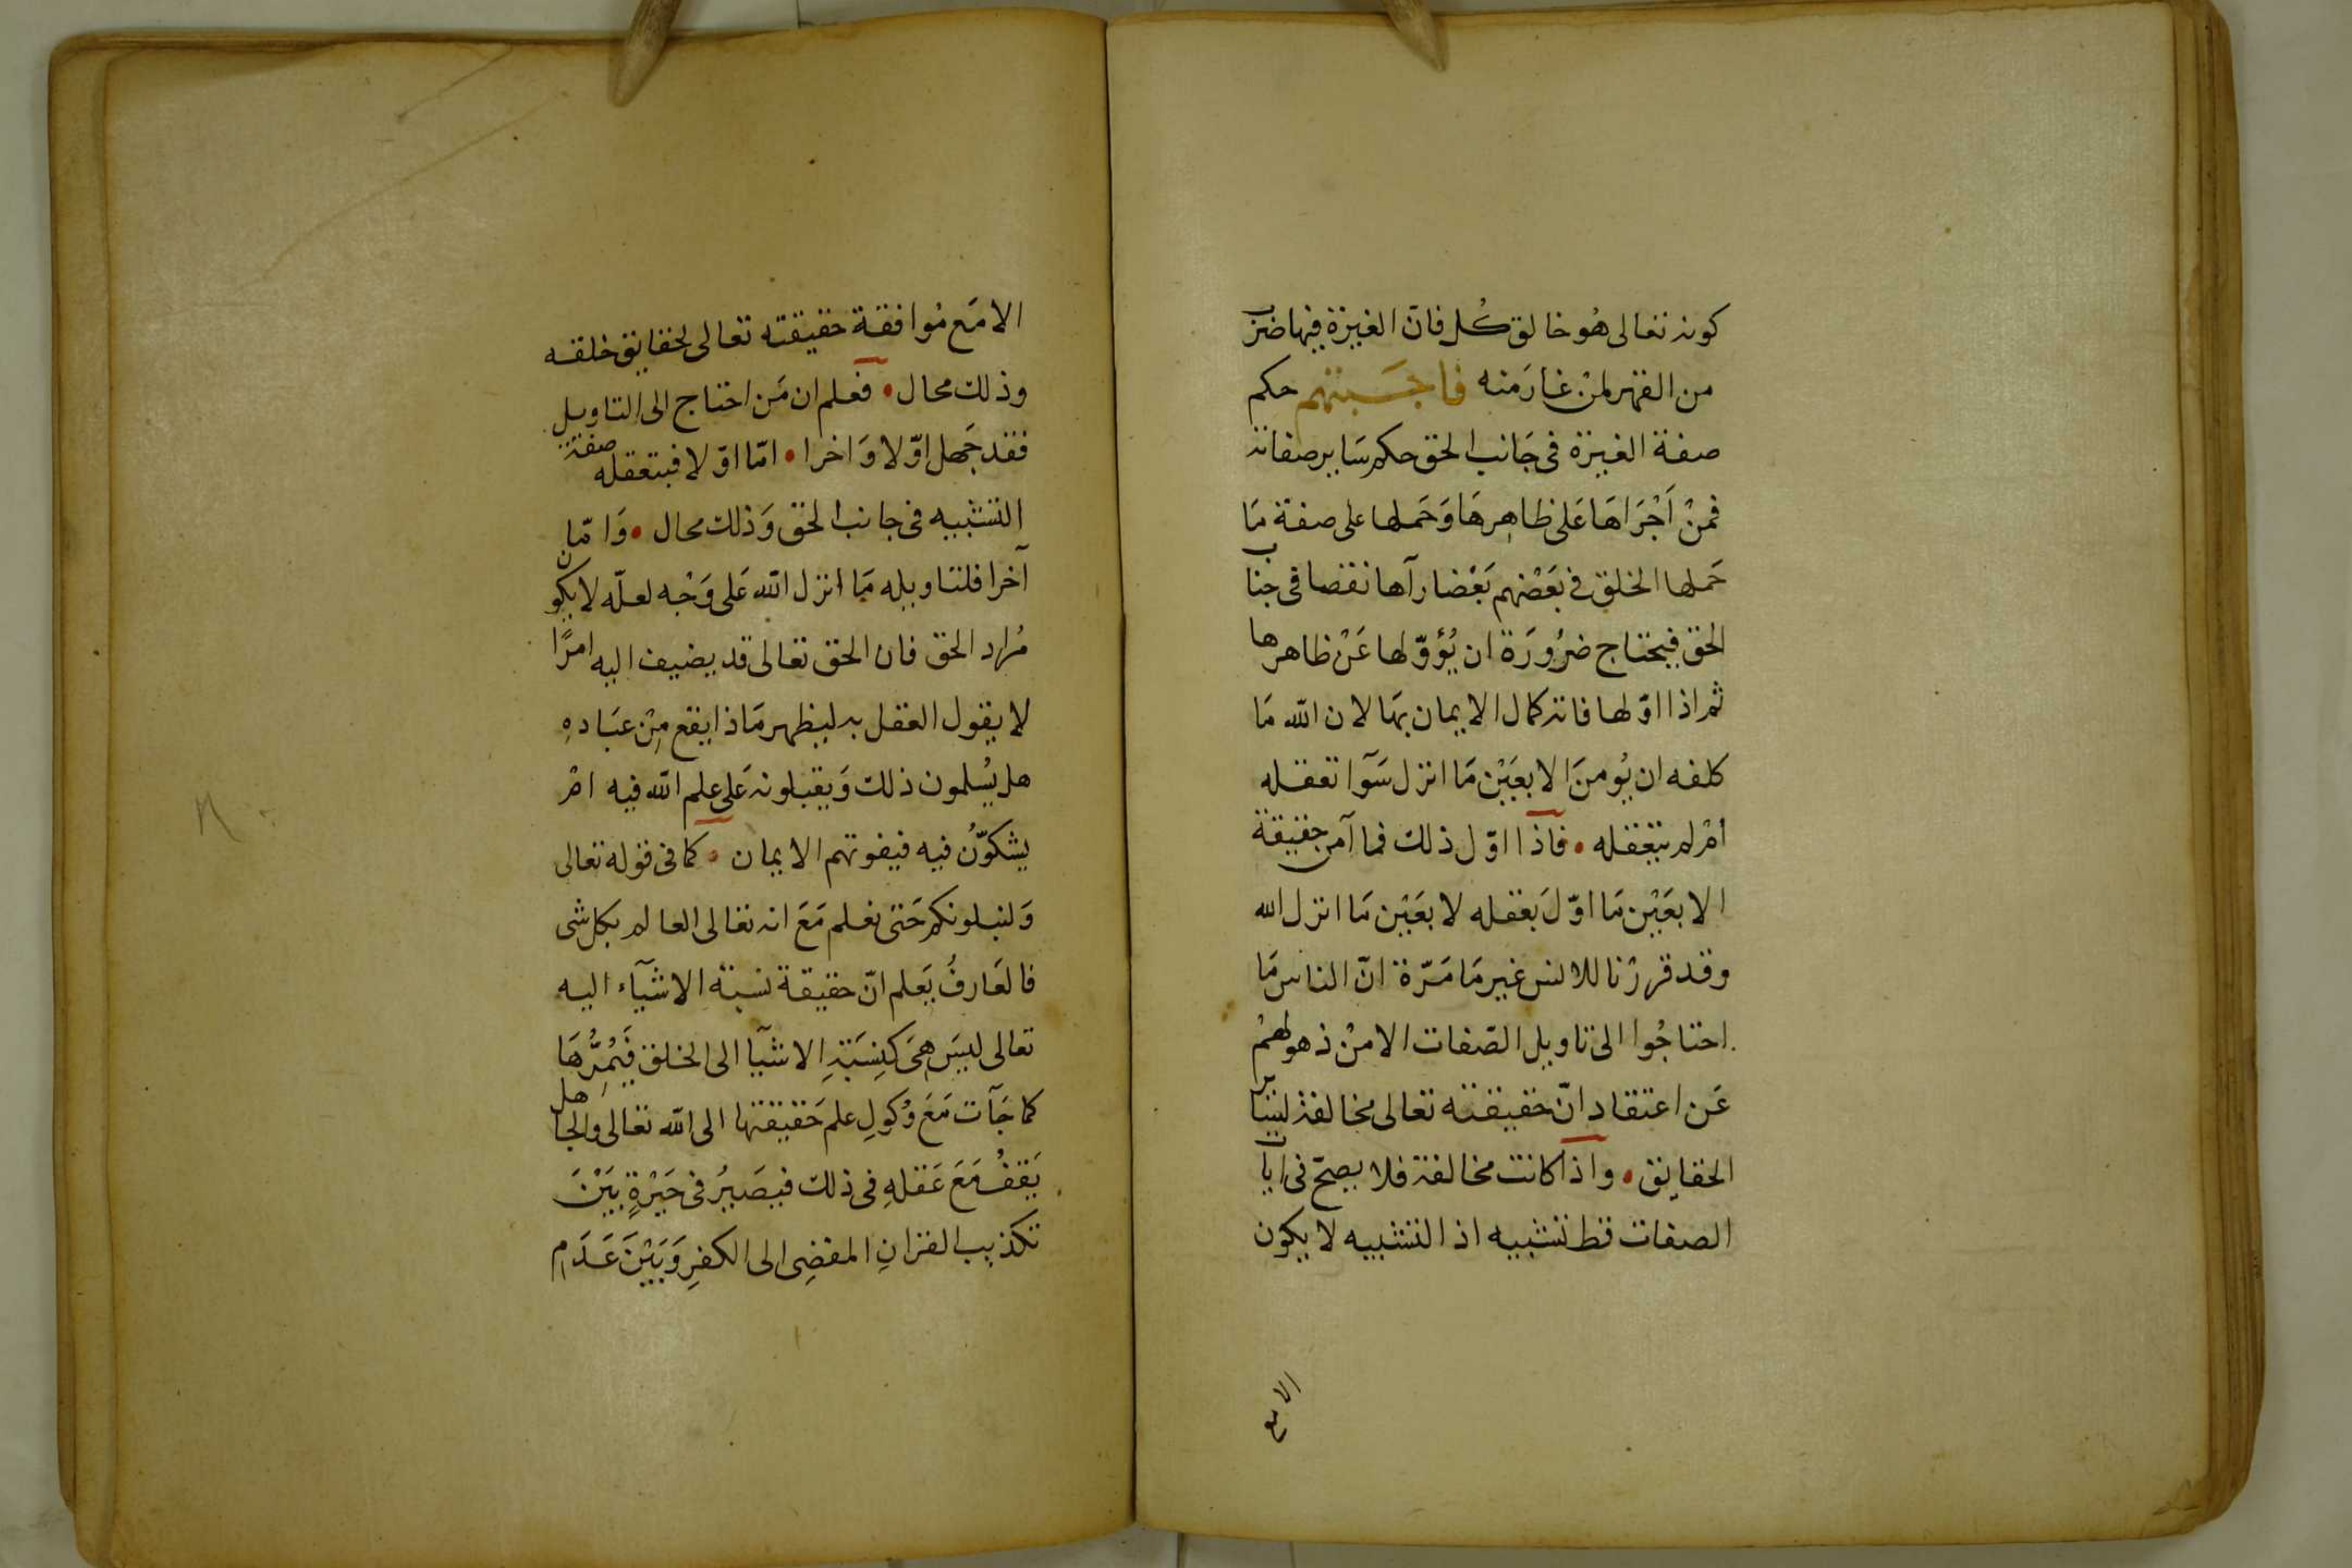 كونه تعالى هُو خالق كُل فان الغيرة فيها ضرب
من القهر لمنْ غارَ منه فاجَبتهم حكم
صفة الغيرة فى جَانب الحق حكم سَاير صفاته
فمنْ اَجْرَاهَا عَلى ظاهِرهَا وَحَملها على صفة مَا
حَملها الخلق فى بَعْضهم بَعْضا رآها نقصا فى جناب
الحق فيحتاج ضرُورَة ان يُؤوّلها عَنْ ظاهرها
ثم اذا اوّلها فاته كمال الايمان بهَا لان الله مَا
كلفه ان يُومنَ الا بعَيْن مَا انزل سَوآ تعقله
امْ لم يتعقله • فاذا اوّل ذلك فما آمن حقيقة
الا بعَيْن مَا اوّلَ بعقله لا بعَيْن مَا انزل الله
وقد قررْنا للانس غير مَا مَرّة انّ الناس مَا
احتاجُوا الى تاويل الصّفات الا منْ ذهولهمْ
عَن اعتقاد انّ حقيقته تعالى مخالفة لساير
الحقايق • واذا كانت مخالفة فلا يصحّ فى ايات
الصفات قط تشبيه اذ التشبيه لا يكون
الا مع
الا مَع مُوافقة حقيقته تعالى لحقايق خلقه
وذلك محال • فعلم ان مَن احتاج الى التاويل
فقد جَهل اوّلا وَاخرا • امّا اوّلا فبتعقله صفة
التشبيه فى جانب الحق وَذلك محال • وَامّا
آخرا فلتاويله مَا انزل الله عَلى وَجْه لعلّه لا يكون
مُراد الحق فان الحق تعالى قد يضيف اليه امرًا
لا يقول العقل به ليظهر مَاذا يقع مِنْ عبَادهِ
هل يُسلمون ذلك وَيقبلونه عَلى علم الله فيه امْ
يشكوّنُ فيه فيفوتهم الايمان • كما فى قوله تعالى
وَلنبلونكم حَتى نعلم مَعَ انه تعالى العالم بكل شى
فالعَارفُ يَعلم انّ حقيقة نسبة الاشيآء اليه
تعالى ليسَ هىَ كنِسَبَةِ الاشيآ الى الخلق فَيُمِرُّهَا
كما جَآت مَعَ وُكولِ علم حَقيقتها الى الله تعالى والجاهل
يَقفُ مَعَ عَقلهِ فى ذلك فيصَيرُ فى حَيْرةٍ بَيْنَ
تكذيب القرانِ المفضِى الى الكفرِ وَبَيْنَ عَدَمِ